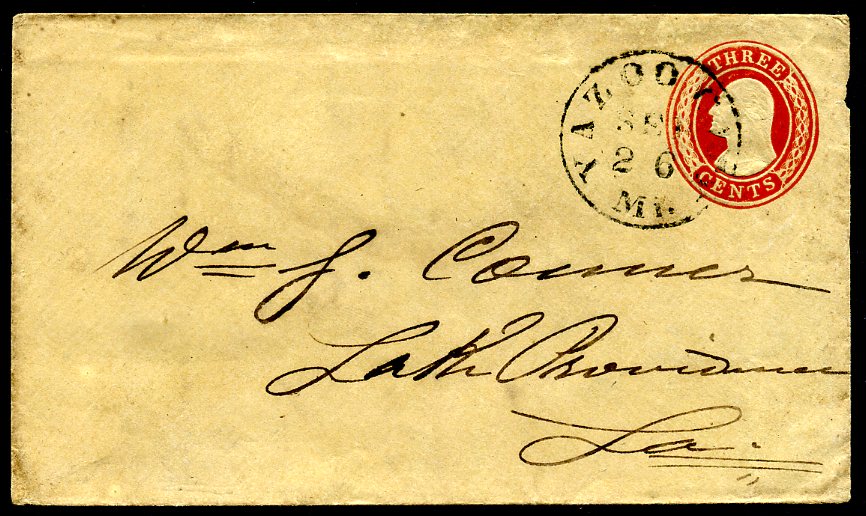 THREE
CENTS
YAZOO
26
Wm J. Conner
Lake Providence
La.